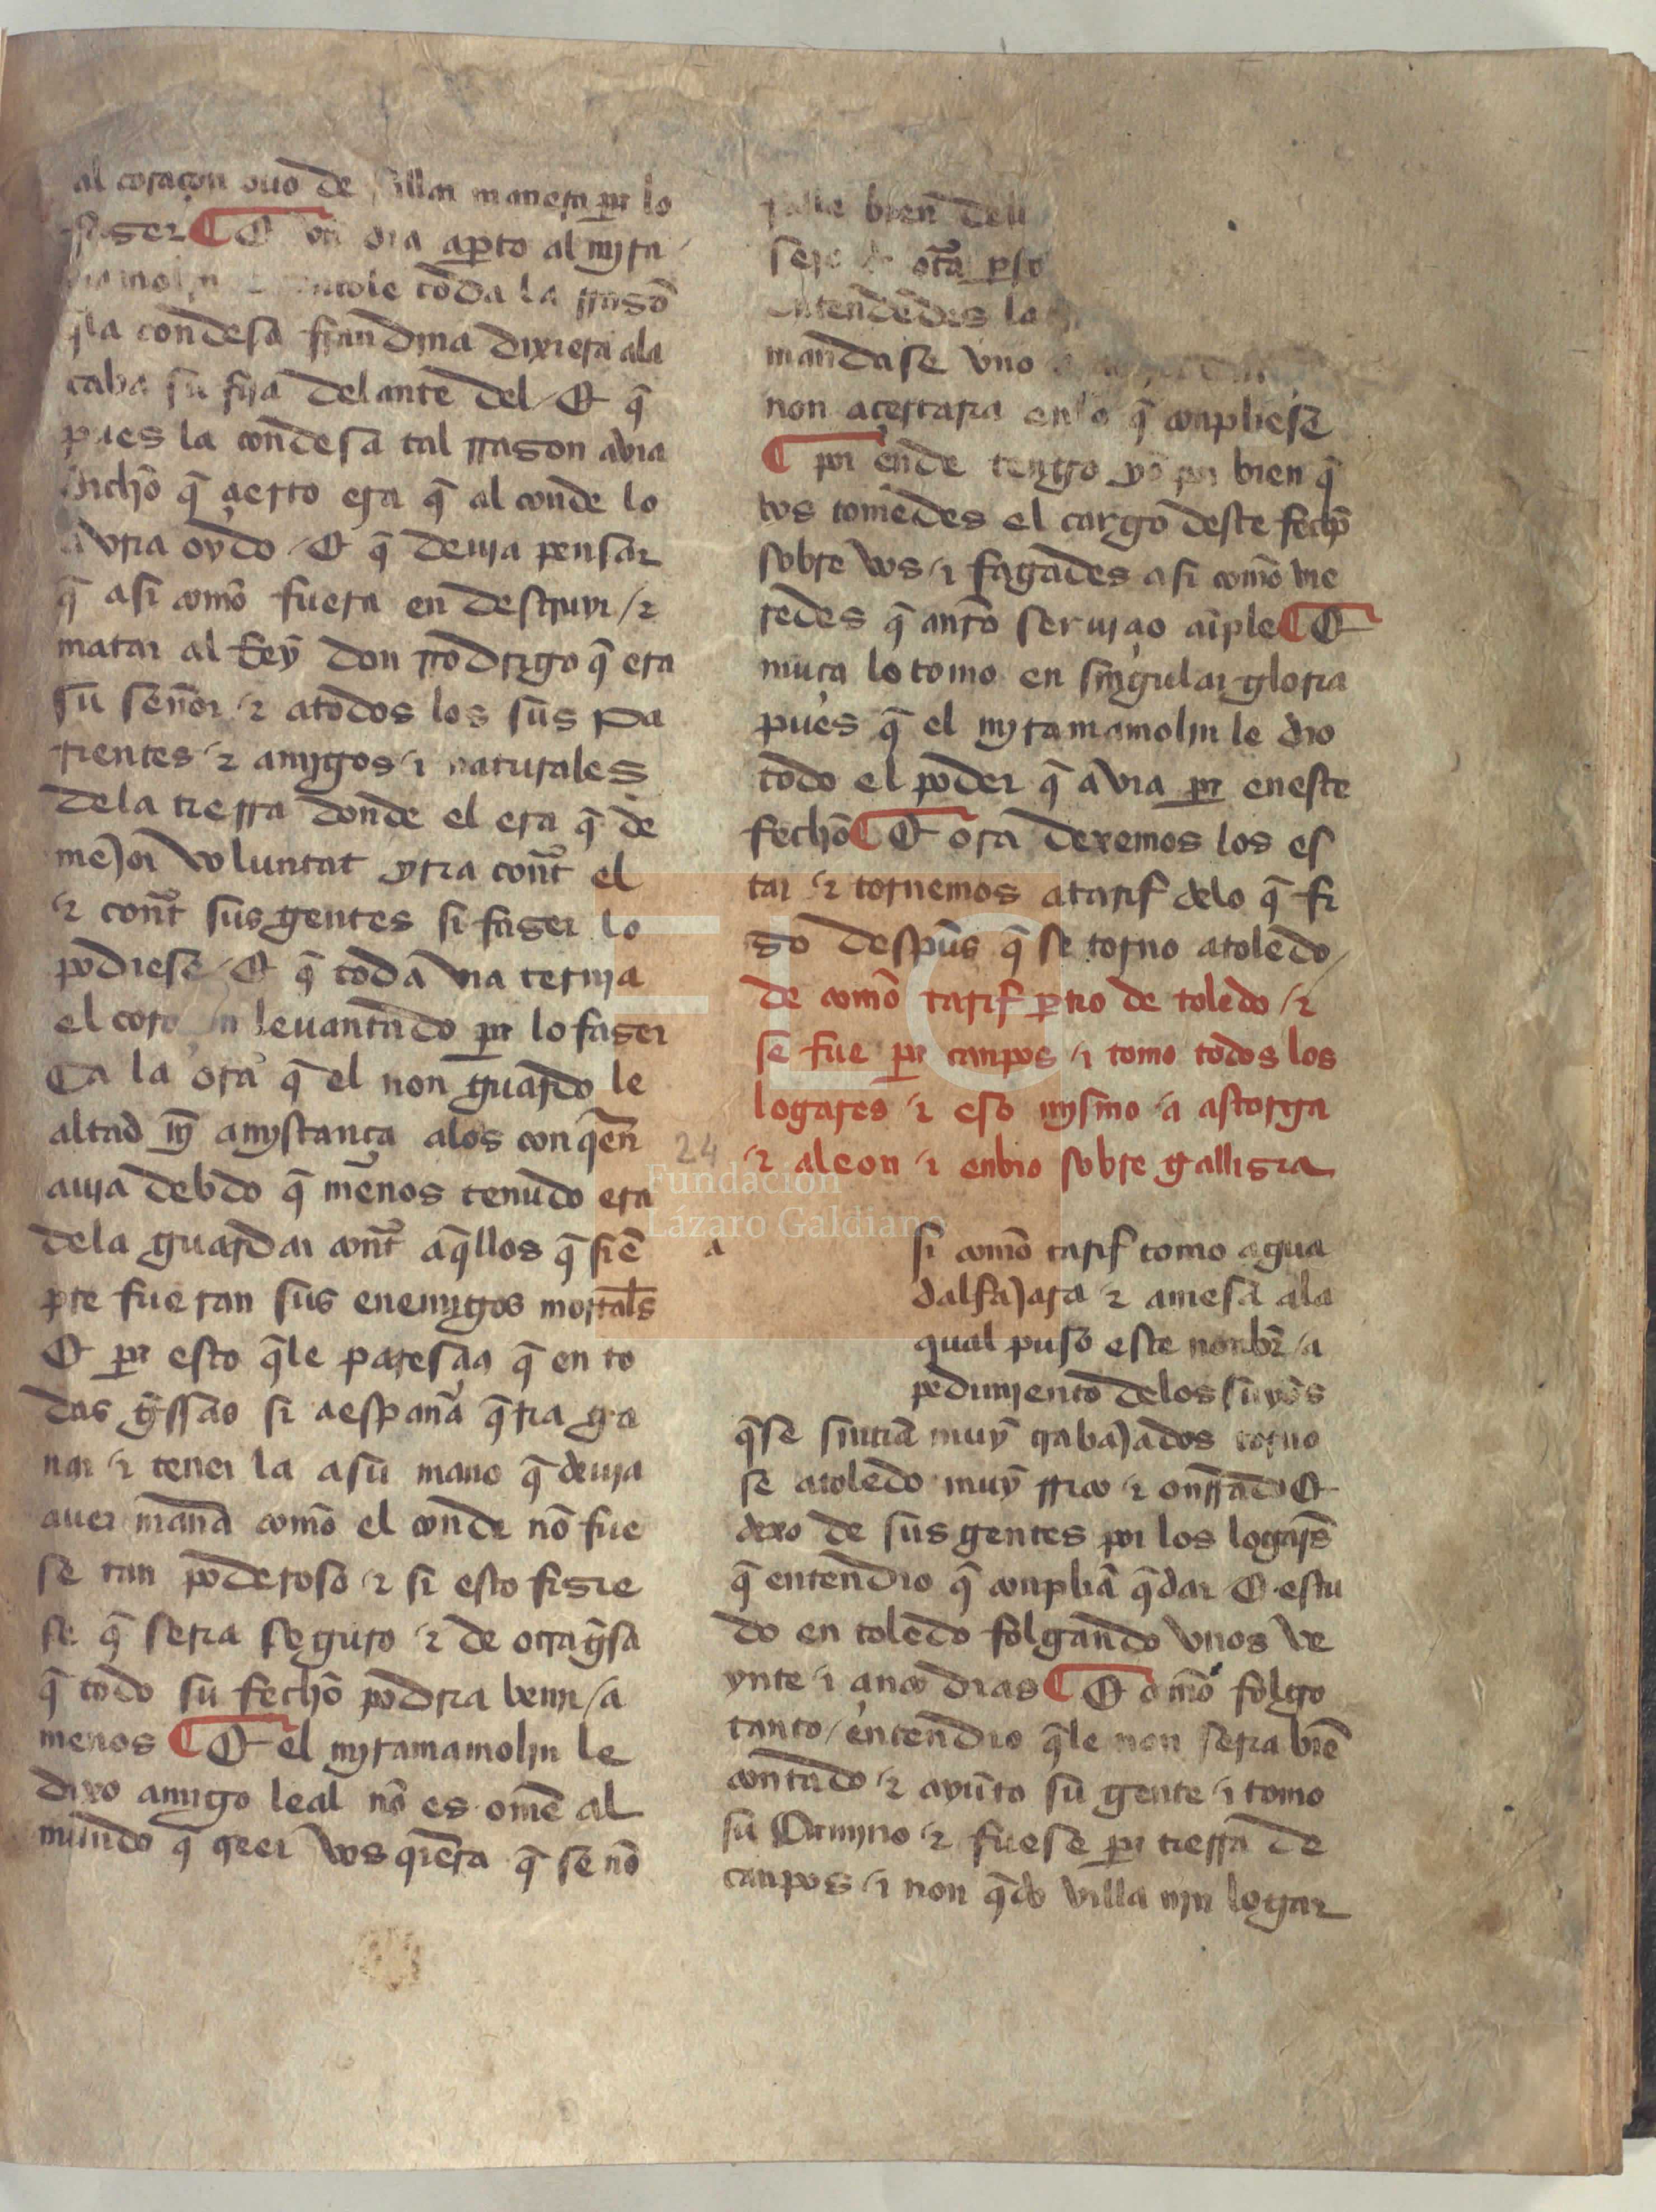 al coraçon ouo de fallar manera par lo
faser ¶ Et un dia aparto al myra
mamolin toda la rrasõ
q̃la condesa frandina dixiera ala
caba su fija delante del / Et q̃
pues la condesa tal rrason avia
dicho q̃ çierto era q̃ al conde lo
avria oydo / Et q̃ deuja pensar
q̃ asi como fuera en destruyr / ⁊
matar al Rey don rrodrigo q̃ era
su señor / ⁊ atodos los sus pa
rientes / ⁊ amjgos / ⁊ naturales
dela tierra donde el era q̃ de
mejor voluntat yria contˀ el
/ ⁊ contˀ sus gentes si faser lo
podiese / Et q̃ toda via ternja
el coraçon leuantado par lo faser
Ca la ora q̃ el non guardo le
altad nj̃ amjstança alos con q̃en
auja debdo q̃ menos tenudo era
dela guardar contˀ aq̃llos q̃ siẽ
pre fueran sus enemjgos mortals̃
Et par esto q̃le paresçia q̃ en to
das g̃ssas si aespaña q̃ria ga
nar / ⁊ tener la asu mano q̃ deuja
auer maña como el conde nõ fue
se tan poderoso / ⁊ si esto fisie
se q̃ seria seguro / ⁊ de otra g̃sa
q̃ todo su fecho podria benir / a
menos ¶ Et el myramamolin le
dixo amigo leal nõ es ome al
mundo q̃ q̃rer vos q̃era q̃ se nõ
falle bien dell
otra
entendedes la
mandase vno
non açertaria enlo q̃ conpliese
¶ por ende tengo yo por bien q̃
vos tomedes el cargo deste fecho
sobre vos / ⁊ fagades asi como vie
redes q̃ anr̃o seruiçio cũple ¶ Et
muça lo tomo en singular gloria
pues q̃ el myramamolin le dio
todo el poder q̃ avia par eneste
fecho ¶ Et ora dexemos los es
tar / ⁊ tornemos atarif delo q̃ fi
so despũs q̃ se torno atoledo /
de como tarif partio de toledo / ⁊
se fue par canpos / ⁊ tomo todos los
logares / ⁊ eso mysmo / a astorga
/ ⁊ aleon / ⁊ enbio sobre gallisia
a si como tarif tomo agua
dalfajara / ⁊ amesa ala
qual puso este nonbr̃ / a
pedimjento delos suyos
q̃se sintiã muy trabajados torno
se atoledo muy rrico / ⁊ onrrado Et
dexo de sus gentes por los logars̃
q̃ entendio q̃ conpliã q̃dar Et estu
do en toledo folgando vnos ve
ynte / ⁊ çinco dias ¶ Et como folgo
tanto / entendio q̃le non seria biẽ
contado / ⁊ ayunto su gente / ⁊ tomo
su Camyno / ⁊ fuese par tierra de
canpos / ⁊ non q̃do villa njn logar
24
Fundación
Lázaro Galdiano
FLG